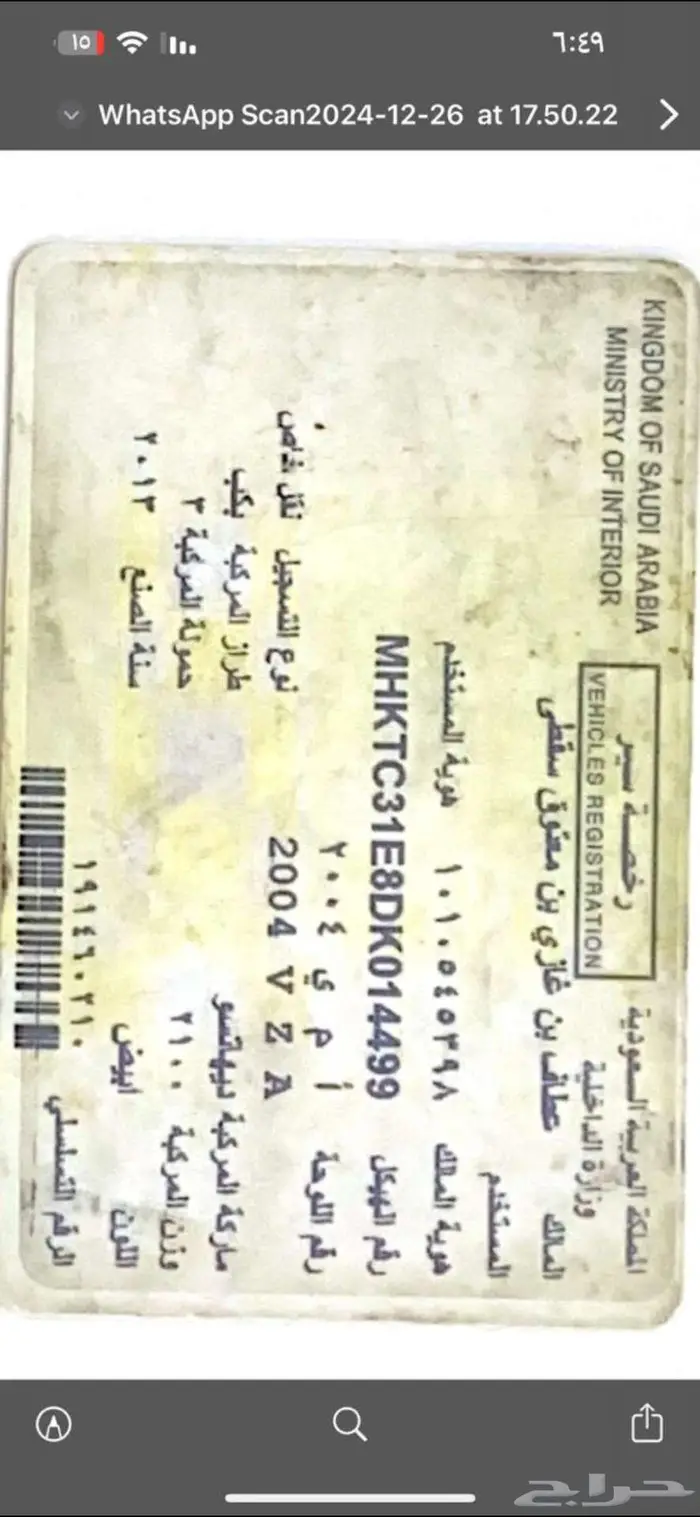 ١٥
٦:٤٩
WhatsApp Scan2024-12-26 at 17.50.22
KINGDOM OF SAUDI ARABIA
MINISTRY OF INTERIOR
رخصة سير
VEHICLES REGISTRATION
المملكة العربية السعودية
وزارة الداخلية
المالك عطاف بن غازي بن معتوق سقطى
المستخدم
هوية المالك ١٠١٠٥٤٥٣٩٨ هوية المستخدم
رقم الهيكل MHKTC31E8DK014499
رقم اللوحة أ م ي ٢٠٠٤
2004 V Z A
نوع التسجيل نقل خاص
ماركة المركبة ديهاتسو طراز المركبة بكب
وزن المركبة ٢١٠٠ حمولة المركبة ٣
اللون ابيض سنة الصنع ٢٠١٣
الرقم التسلسلي ١٩١٤٦٠٢١٠
حراج